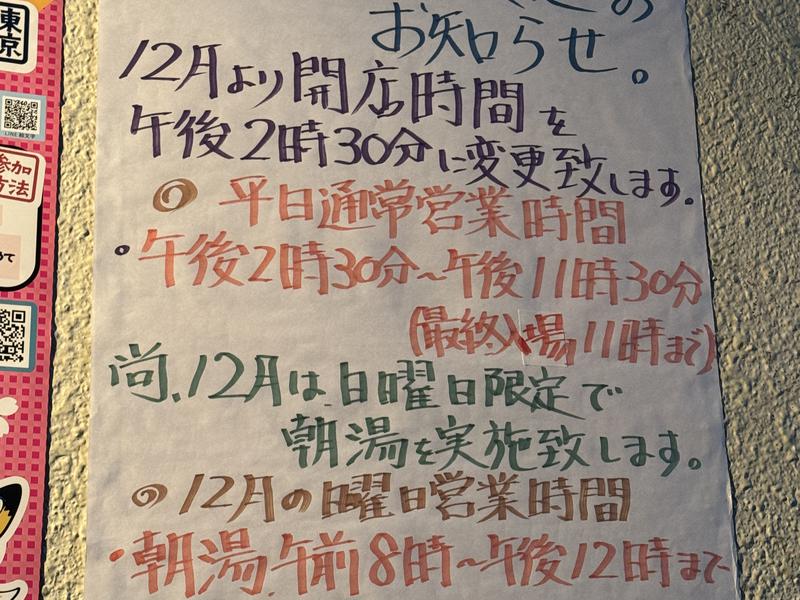 お知らせ。
12月より開店時間を
午後2時30分に変更致します。
◎ 平日通常営業時間
・午後2時30分~午後11時30分
(最終入場11時まで)
尚、12月は日曜日限定で
朝湯を実施致します。
◎12月の日曜日営業時間
・朝湯 午前8時~午後12時まで
東京
LINE 絵文字
参加
方法